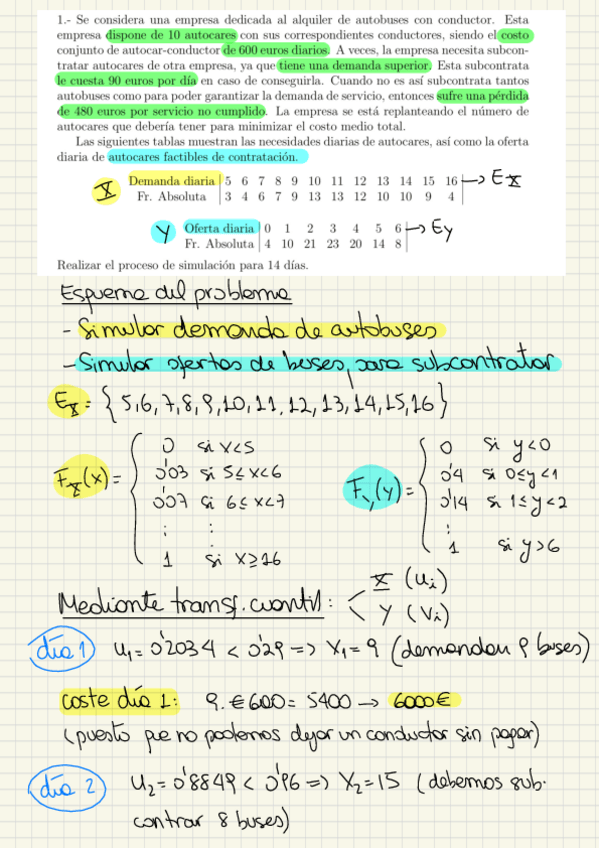 1.- Se considera una empresa dedicada al alquiler de autobuses con conductor. Esta
empresa dispone de 10 autocares con sus correspondientes conductores, siendo el costo
conjunto de autocar-conductor de 600 euros diarios. A veces, la empresa necesita subcon-
tratar autocares de otra empresa, ya que tiene una demanda superior. Esta subcontrata
le cuesta 90 euros por día en caso de conseguirla. Cuando no es así subcontrata tantos
autobuses como para poder garantizar la demanda de servicio, entonces sufre una pérdida
de 480 euros por servicio no cumplido. La empresa se está replanteando el número de
autocares que debería tener para minimizar el costo medio total.
Las siguientes tablas muestran las necesidades diarias de autocares, así como la oferta
diaria de autocares factibles de contratación.
X Demanda diaria | 5 6 7 8 9 10 11 12 13 14 15 16 → EX
Fr. Absoluta | 3 4 6 7 9 13 13 12 10 10 9 4
Y Oferta diaria | 0 1 2 3 4 5 6 → Ey
Fr. Absoluta | 4 10 21 23 20 14 8
Realizar el proceso de simulación para 14 días.
Esquema del problema
- Simular demanda de autobuses
- Simular ofertas de buses para subcontratar
EX = {5,6,7,8,9,10,11,12,13,14,15,16}
FX(x) = { 0 si x<5
0'03 si 5≤x<6
0'07 si 6≤x<7
⋮ ⋮
1 si x≥16
FY(y) = { 0 si y<0
0'4 si 0≤y<1
0'14 si 1≤y<2
⋮
1 si y>6
Mediante transf. cuantil: < X (Ui)
Y (Vi)
día 1 U1 = 0'2034 < 0'29 => X1 = 9 (demandan 9 buses)
coste día 1: 9.€600 = 5400 → 6000€
(puesto que no podemos dejar un conductor sin pagar)
día 2 U2 = 0'8849 < 0'96 => X2 = 15 (debemos sub-
contrar 8 buses)